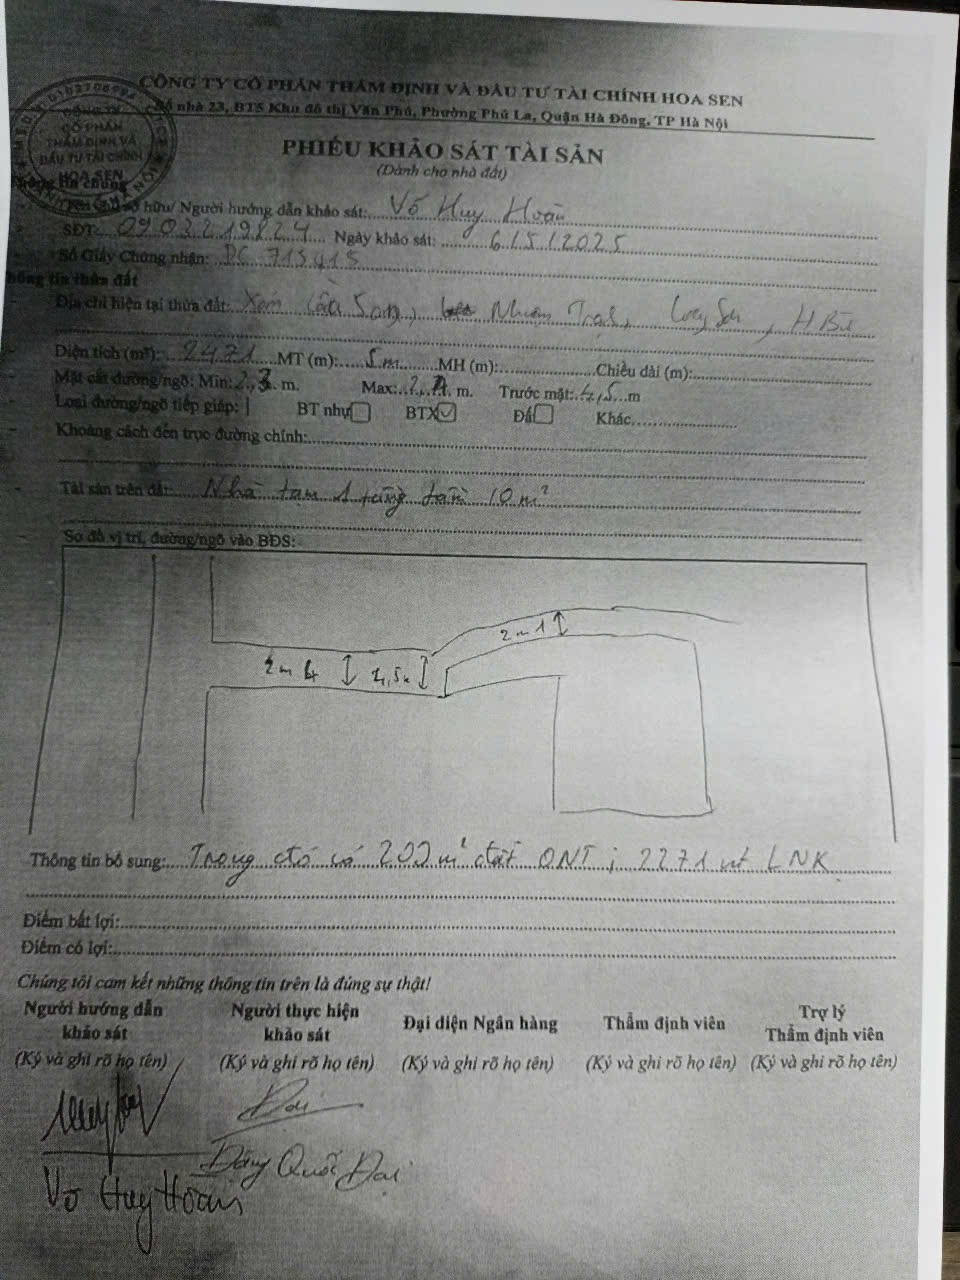 CÔNG TY CỔ PHẦN THẨM ĐỊNH VÀ ĐẦU TƯ TÀI CHÍNH HOA SEN
Số nhà 23, BT5 Khu đô thị Văn Phú, Phường Phú La, Quận Hà Đông, TP Hà Nội
CÔNG TY
CỔ PHẦN
THẨM ĐỊNH VÀ
ĐẦU TƯ TÀI CHÍNH
HOA SEN
PHIẾU KHẢO SÁT TÀI SẢN
(Dành cho nhà đất)
Thông tin chung
hữu/ Người hướng dẫn khảo sát: Võ Huy Hoàn
SĐT: 0902219824 Ngày khảo sát: 6/5/2025
Số Giấy Chứng nhận: DC 715415
Thông tin thửa đất
Địa chỉ hiện tại thửa đất: Xóm Sơn, Nhuận Trạch, Lương Sơn, H Bình
Diện tích (m²): 2471 MT (m): 5m MH (m): Chiều dài (m):
Mặt cắt đường/ngõ: Min: 2,3 m. Max: 2,4 m. Trước mặt: 4,5 m
Loại đường/ngõ tiếp giáp: BT nhự BTX Đấ Khác
Khoảng cách đến trục đường chính:
Tài sản trên đất: Nhà tạm 1 tầng tầm 10m²
Sơ đồ vị trí, đường/ngõ vào BĐS:
2m1
2m4
Thông tin bổ sung: Trong đó có 200m² đất ONT; 2271 m² LNK
Điểm bất lợi:
Điểm có lợi:
Chúng tôi cam kết những thông tin trên là đúng sự thật!
Người hướng dẫn khảo sát Người thực hiện khảo sát Đại diện Ngân hàng Thẩm định viên Trợ lý Thẩm định viên
(Ký và ghi rõ họ tên) (Ký và ghi rõ họ tên) (Ký và ghi rõ họ tên) (Ký và ghi rõ họ tên) (Ký và ghi rõ họ tên)
Đại
Đặng Quốc Đại
Võ Huy Hoàn